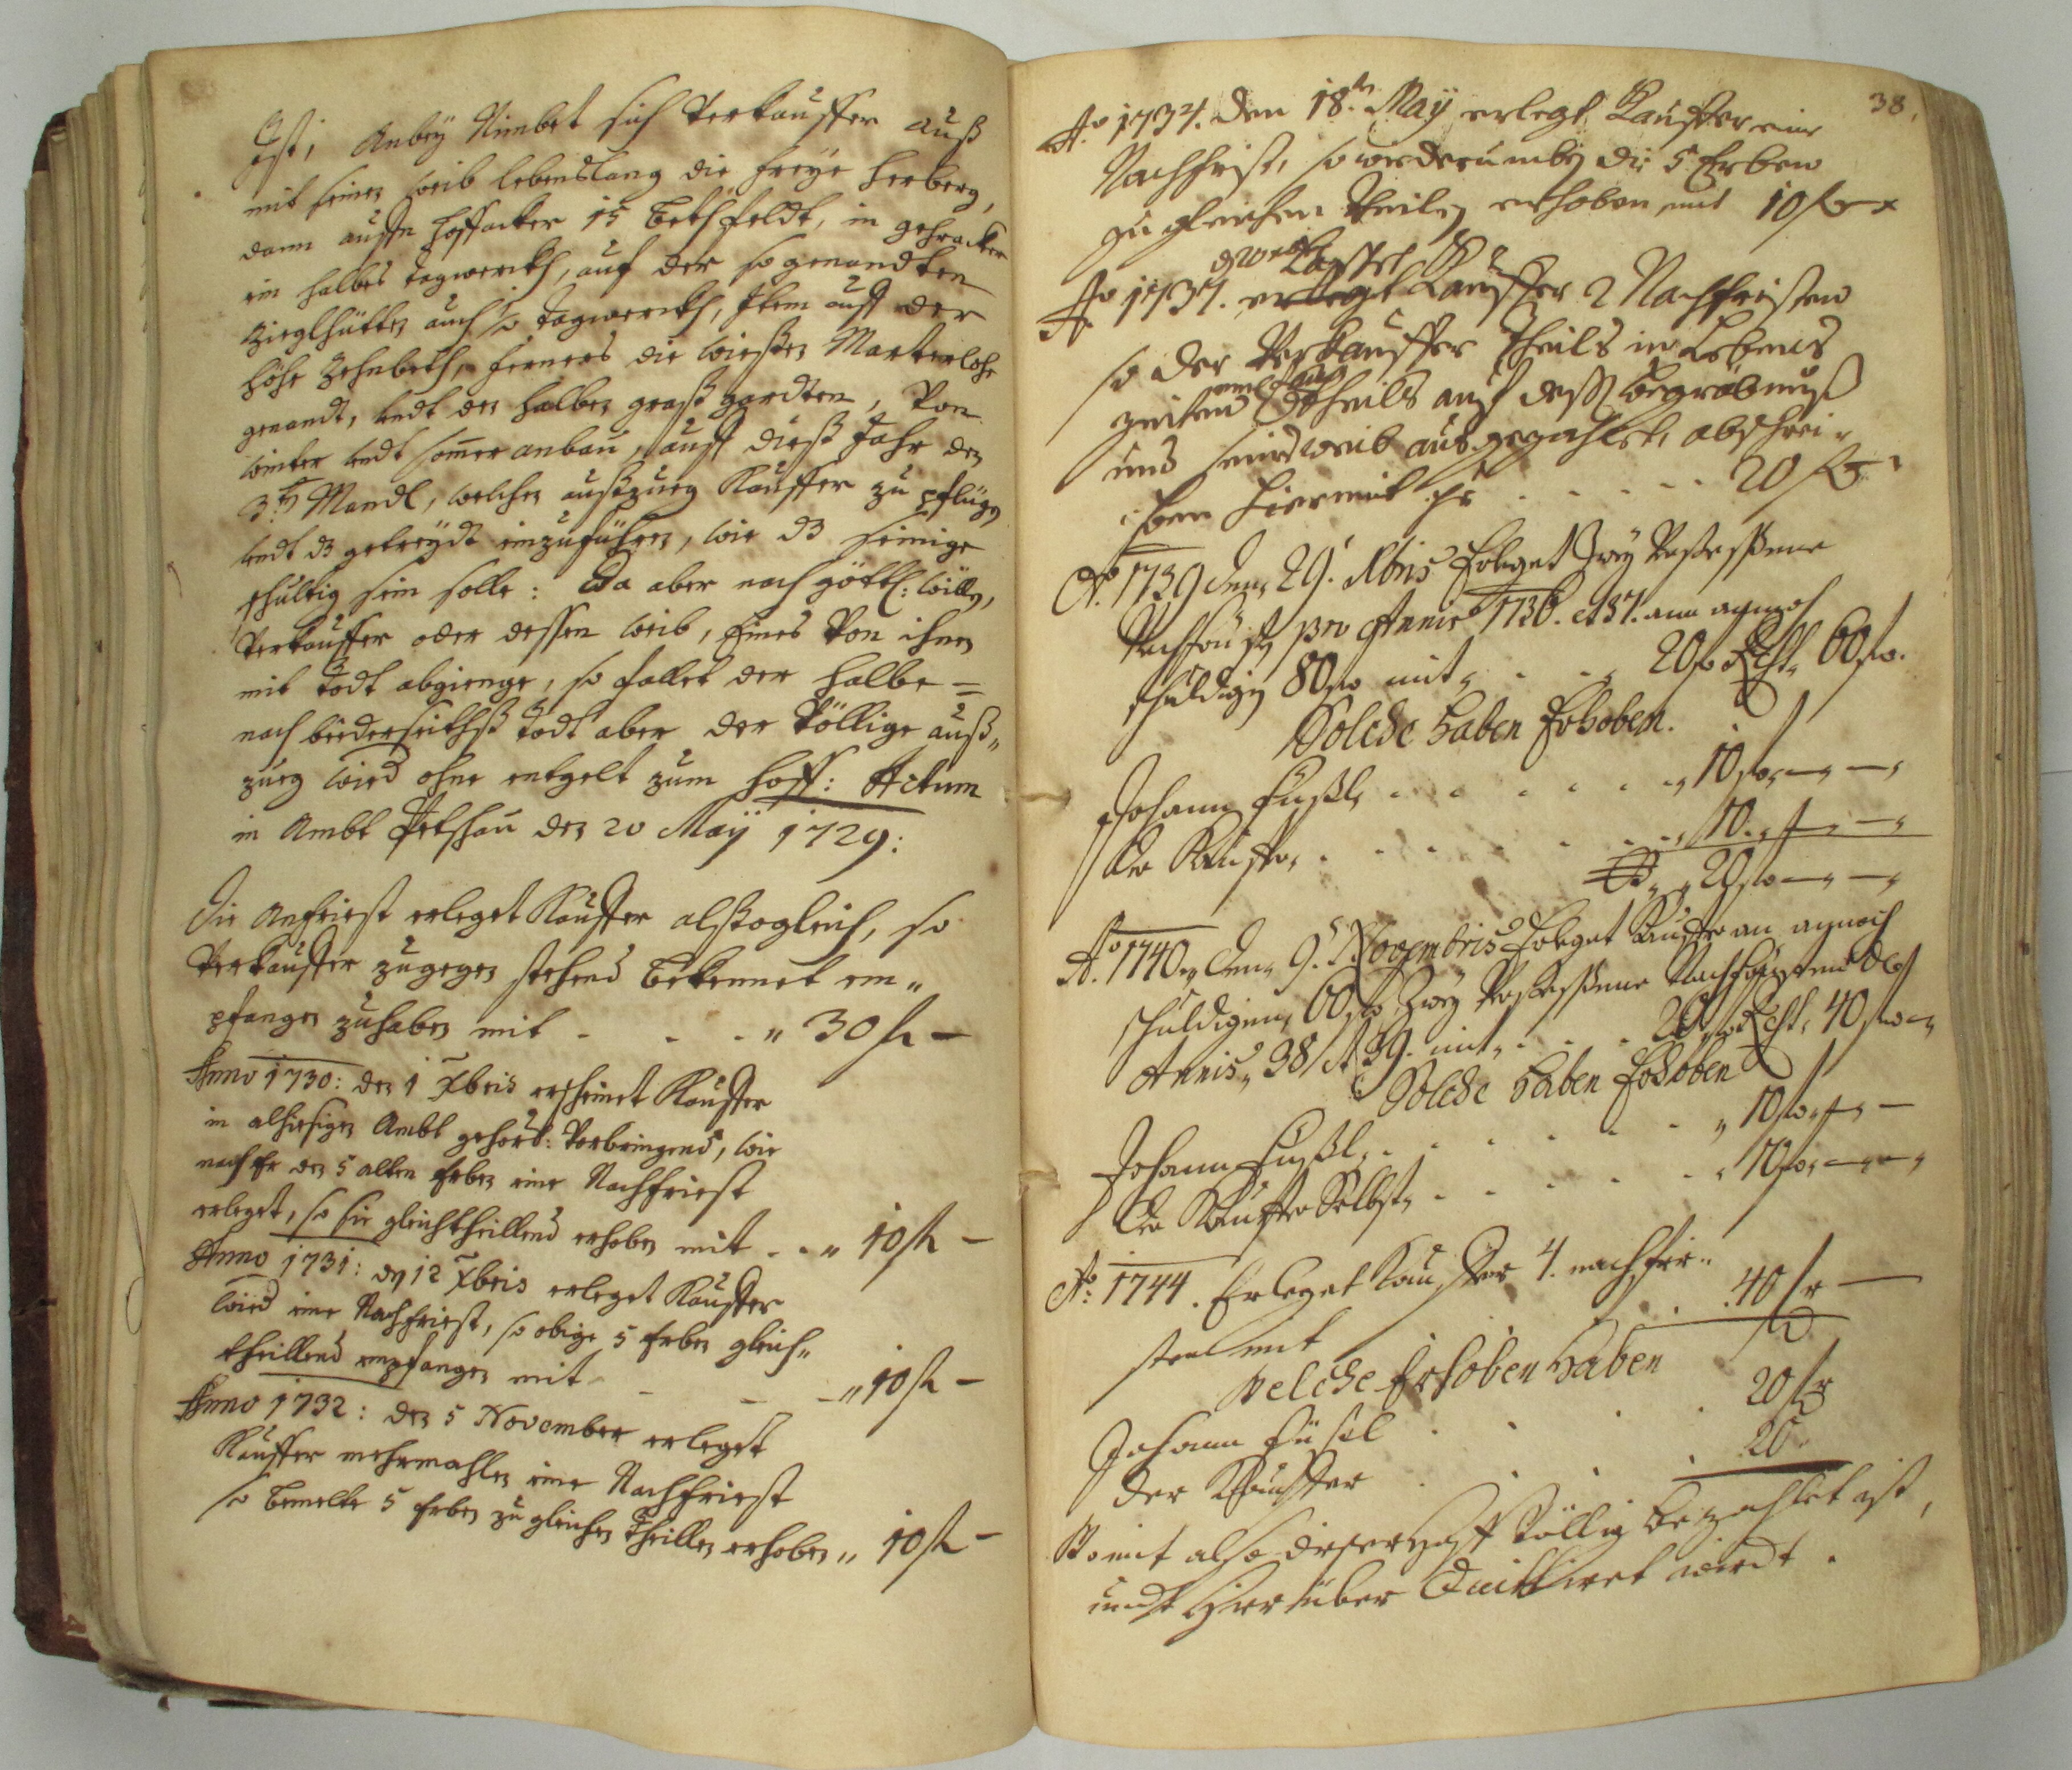 Ist, Anbeÿ Nimbet sich Verkauffer auß
mit seinen weib lebenslang die freÿe herberg,
dann auffn hoffacker 15 Beth feldt, in gehracker
ein halbes tagwerckh, auf der so genandten
Zieglhütten auch ½ tagwerckh, Item auff der
höhe Zehnbeth, ferners die wießen Marterlohe
genandt, undt den halben graß gardten, Von
winter undt somer anbau, auff dieß Jahr den
3ten Mandl, welchen außzueg Kauffer zu pflügen
undt dz getreÿdt einzuführen, wie dz seinige
schultig sein solle: Da aber nach göttl: willen,
Verkauffer oder dessen weib, Eines Von ihnen
mit todt abgienge, so fallet der halbe =
nach beederseithß todt aber der Völlige auß„
zueg wird ohne entgelt zum hoff: Actum
in Ambt Petschau den 20 Maÿ 1729:
Die Anfriest erleget Kauffer alßogleich, so
Verkauffer zugegen stehend bekennet em„
pfangen zuhaben mit - - - „ 30 fl —
Anno 1730: den 1 Xbris erscheinet Kauffer
in alhiesigen Ambt gehors: Vorbringend, wie
nach Er den 5 alten Erben eine Nachfriest
erleget, so sie gleichtheillend erhoben mit - - „ 10 fl —
Anno 1731: den 12 Xbris erleget Kauffer
wird eine Nachfriest, so obige 5 Erben gleich„
theillend empfangen mit - - - „ 10 fl —
Anno 1732: den 5 November erleget
Kauffer mehrmahlen eine Nachfriest
so bemelte 5 Erben zu gleichen theillen erhoben „ 10 fl —
38.
Ao 1734. den 18ten Maÿ erlegt Kauffer eine
Nachfrist, so wiederumben die 5 Erben
zu gleichen theilen erhoben mit 10 fl
Ao 1737. erlegt Kauffer 2 Nachfristen
so der Verkauffer theils in Lebens
zeiten theils auf dessen begräbnuß
und seind weib ausgezahlet, abschrei-
ben hiermit pr . . . . . 20 fl
Ao 1739 den 29. Xbris Erleget Zweÿ Verseßene
Nachfristen pro Annis 1736. et 37. ann annoch
schuldigen 80 fl mit „ . . „ 20 fl Rest „ 60 fl.
Solche haben Erhoben.
Johann Füßl „ . . . . . . „ 10 fl „ — „ — „
der Kauffer „ . . . . . . „ 10 „ — „ — „
„ 20 fl — „ — „
Ao 1740 „ den „ 9. Novembris Erleget Kauffer an annoch
schuldigen „ 60 fl Zweÿ Verseßene Nachfristen de
Annis „ 38 et 39. mit „ . . . 20 fl Rest „ 40 fl — „
Solche haben Erhoben
Johann Füßl „ . . . . . „ 10 fl „ — „ —
der Kauffer Selbst „ . . . . . „ 10 fl „ — „ — „
Ao 1744. Erleget Kauffer 4. nachfri„
sten mit . . 40 fl —
welche Erhoben haben
Johann Füssl . . . 20 fl
der Kauffer . . . . 20.
Womit also dieser Hoff Völlig bezahlet ist,
undt hierüber Quittiret wirdt.